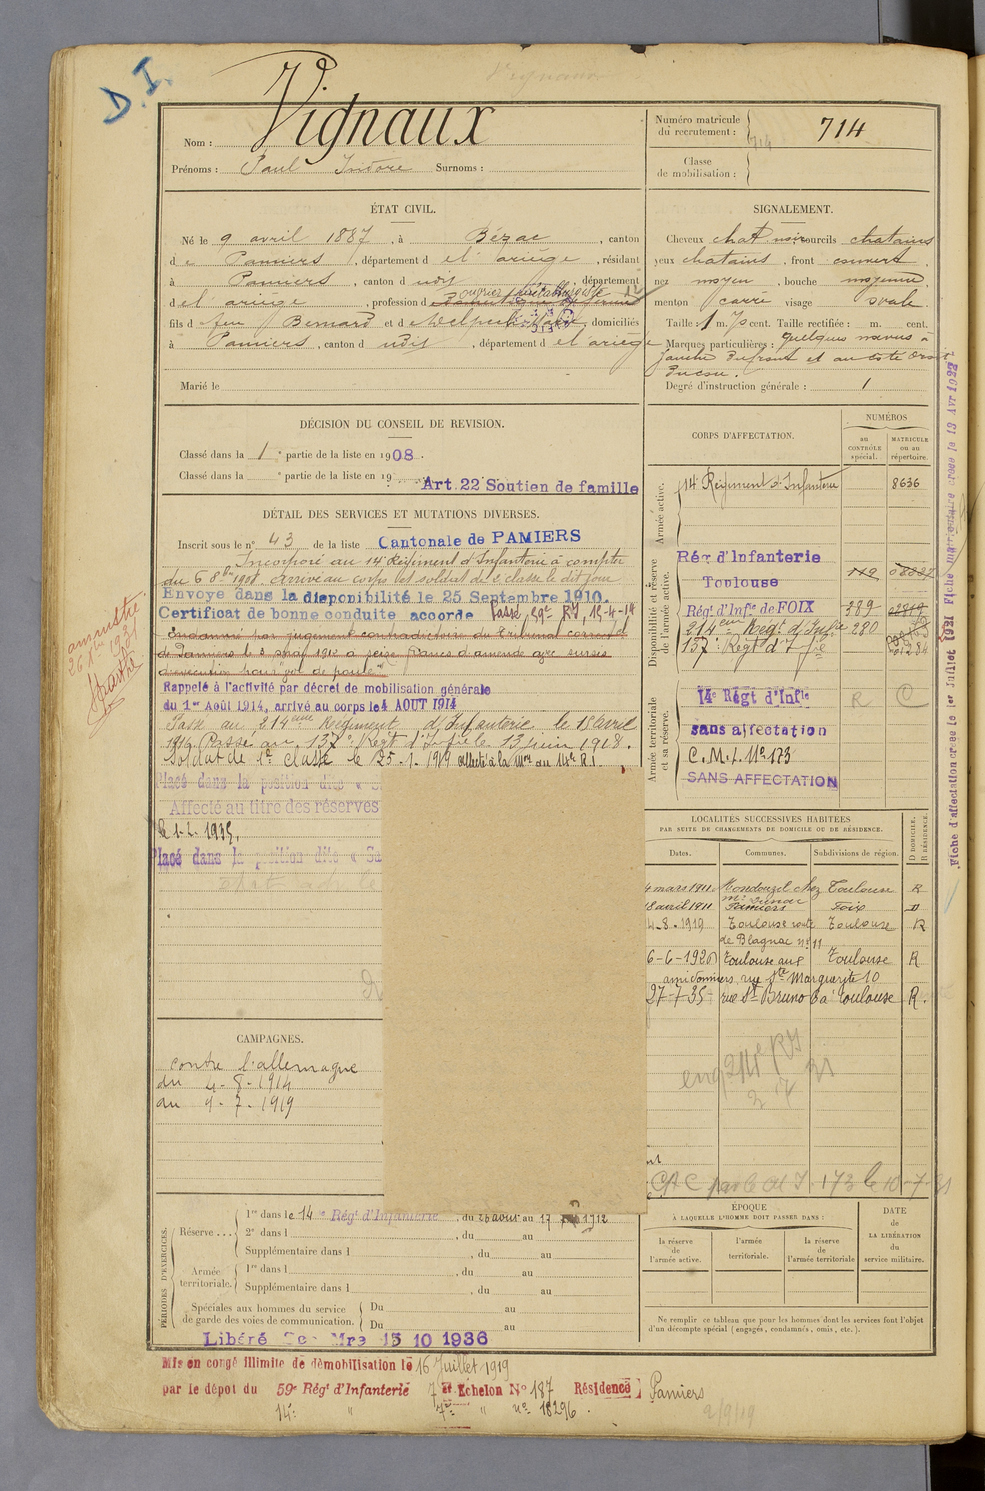 D. I.
Nom : Vignaux
Prénoms : Paul Isidore Surnoms :
Numéro matricule du recrutement : 714
714
Classe de mobilisation :
ÉTAT CIVIL.
Né le 9 avril 1887, à Bézac, canton
de Pamiers, département de l'ariège, résidant
à Pamiers, canton d udit, département
de l'ariège, profession d
fils d feu Bernard et d , domiciliés
à Pamiers, canton d udit, département de l'ariège
Marié le
SIGNALEMENT.
Cheveux chat. noir sourcils chatains
yeux chatains, front couvert,
nez moyen, bouche moyenne,
menton carré visage ovale
Taille : 1 m. cent. Taille rectifiée : m. cent.
Marques particulières : quelques naevus à
gauche du front et au coté droit
du cou.
Degré d'instruction générale : 1
DÉCISION DU CONSEIL DE REVISION.
Classé dans la 1e partie de la liste en 1908.
Classé dans la e partie de la liste en 19
Art. 22 Soutien de famille
DÉTAIL DES SERVICES ET MUTATIONS DIVERSES.
Inscrit sous le n° 43 de la liste Cantonale de PAMIERS
Incorporé au 14e Régiment d'Infanterie à compter
du 6 8bre 1908. Arrivé au corps et soldat de 2e classe le dit jour
Envoyé dans la disponibilité le 25 Septembre 1910.
Certificat de bonne conduite accordé Passé 59e RI, 15-4-14
Condamné par jugement contradictoire du Tribunal correct.
de Pamiers le 3 mai 1912 à seize francs d'amende avec sursis
d'exécution pour "vol de poule"
amnistie
Rappelé à l'activité par décret de mobilisation générale
du 1er Août 1914, arrivé au corps le 4 AOUT 1914
Passé au 214ème Régiment d'Infanterie le 15 avril
Passé au 137e Régt d'Infie le 13 juin 1918.
Soldat de 1e classe le 25-1-1919 affecté à la Mre au 14e R.I.
Placé dans la position dite « S
Affecté au titre des réserves
Le 1-2-1935,
Placé dans la position dite « Sa
CORPS D'AFFECTATION.
NUMÉROS
au CONTRÔLE spécial.
MATRICULE ou au répertoire.
Armée active.
14e Régiment d'Infanterie 8636
Disponibilité et réserve de l'armée active.
Rég. d'Infanterie
Toulouse
Régt d'Infie de FOIX 389
214ème Régt d'Infie 280
137e Régt d'Infie
Armée territoriale et sa réserve.
14e Régt d'Infie R C
sans affectation
C.M.I. N° 173
SANS AFFECTATION
Fiche d'affectation créée le 1er Juillet 1921
LOCALITÉS SUCCESSIVES HABITÉES
PAR SUITE DE CHANGEMENTS DE DOMICILE OU DE RÉSIDENCE.
Dates. Communes. Subdivisions de région. D DOMICILE. R RÉSIDENCE.
4 mars 1911. Mondouzil chez Toulouse R
18 avril 1911 Pamiers Foix D
4-8-1919 Toulouse route Toulouse R
de Blagnac n° 11
6-6-1926 Toulouse aux Toulouse R
amidonniers, rue Ste Marguerite 10
27-7-35 rue St Bruno 6 à Toulouse R.
CAMPAGNES.
contre l'allemagne
du 4-8-1914
au 9-7-1919
PÉRIODES D'EXERCICES.
Réserve ... 1re dans le 14e Régt d'Infanterie, du 26 avril au 17 1912
2e dans l , du au
Supplémentaire dans l , du au
Armée territoriale. 1re dans l , du au
Supplémentaire dans l , du au
Spéciales aux hommes du service de garde des voies de communication. Du au
Du au
Libéré Mre 15 10 1936
ÉPOQUE
À LAQUELLE L'HOMME DOIT PASSER DANS :
la réserve de l'armée active.
l'armée territoriale.
la réserve de l'armée territoriale
DATE de LA LIBÉRATION du service militaire.
Ne remplir ce tableau que pour les hommes dont les services font l'objet
d'un décompte spécial (engagés, condamnés, omis, etc.).
Mis en congé illimité de démobilisation le 16 Juillet 1919
par le dépôt du 59e Régt d'Infanterie 7e Echelon N° 187 Résidence Pamiers
14e " 7e " n° 18296.
2/9/19